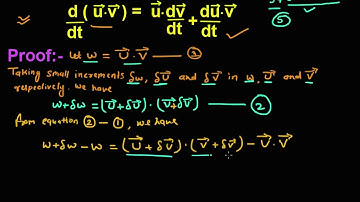 d/dt (u⃗·v⃗) = u⃗·dv⃗/dt + du⃗/dt·v⃗
5
Proof:- Let w = U⃗ · V⃗ — 1
Taking small increments δw, δU⃗ and δV⃗ in w, U⃗ and V⃗
respectively. we have
w+δw = (U⃗+δU⃗) · (V⃗+δV⃗) — 2
From equation 2 – 1, we have
w+δw-w = (U⃗ + δU⃗) · (V⃗ + δV⃗) – U⃗ · V⃗